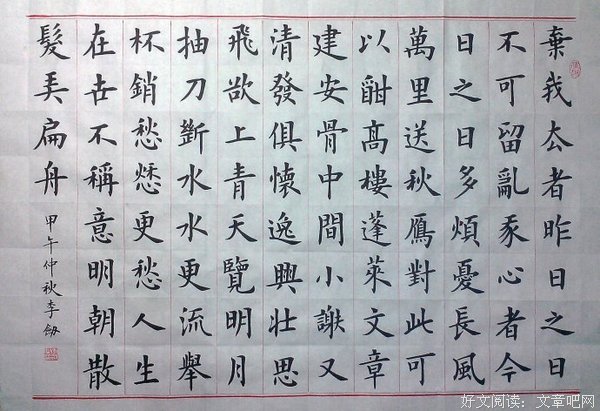 棄我去者昨日之日
不可留亂我心者今
日之日多煩憂長風
萬里送秋鴈對此可
以酣高樓蓬萊文章
建安骨中間小謝又
清發俱懷逸興壯思
飛欲上青天覽明月
抽刀斷水水更流舉
杯銷愁愁更愁人生
在世不稱意明朝散
髮弄扁舟
甲午仲秋李
好文阅读：文章吧网